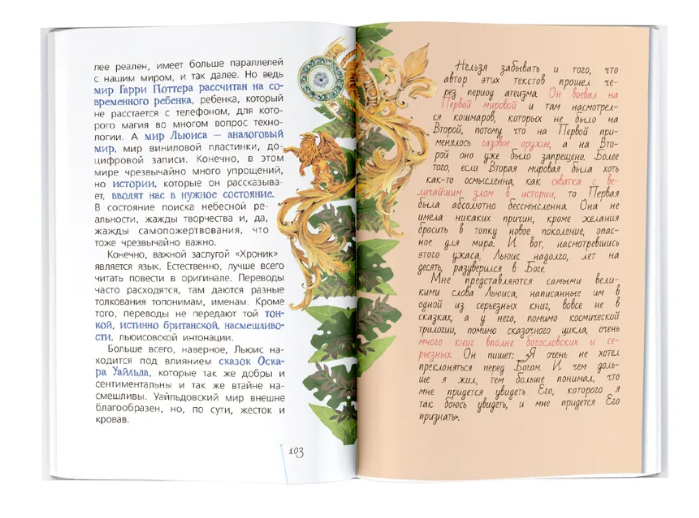 лее реален, имеет больше параллелей
с нашим миром, и так далее. Но ведь
мир Гарри Поттера рассчитан на со-
временного ребенка, ребенка, который
не расстается с телефоном, для кото-
рого магия во многом вопрос техно-
логии. А мир Льюиса – аналоговый
мир, мир виниловой пластинки, до-
цифровой записи. Конечно, в этом
мире чрезвычайно много упрощений,
но истории, которые он рассказыва-
ет, вводят нас в нужное состояние.
В состояние поиска небесной ре-
альности, жажды творчества и, да,
жажды самопожертвования, что
тоже чрезвычайно важно.
Конечно, важной заслугой «Хроник»
является язык. Естественно, лучше всего
читать повести в оригинале. Переводы
часто расходятся, там даются разные
толкования топонимам, именам. Кроме
того, переводы не передают той тон-
кой, истинно британской, насмешливо-
сти, льюисовской интонации.
Больше всего, наверное, Льюис на-
ходится под влиянием сказок Оска-
ра Уайльда, которые так же добры и
сентиментальны и так же втайне на-
смешливы. Уайльдовский мир внешне
благообразен, но, по сути, жесток и
кровав.
103
Нельзя забывать и того, что
автор этих текстов прошел че-
рез период атеизма. Он воевал на
Первой мировой и там насмотрел-
ся кошмаров, которых не было на
Второй, потому что на Первой при-
менялось газовое оружие, а на Вто-
рой оно уже было запрещено. Более
того, если Вторая мировая была хоть
как-то осмысленна, как схватка с ве-
личайшим злом в истории, то Первая
была абсолютно бессмысленна. Она не
имела никаких причин, кроме желания
бросить в топку новое поколение, опас-
ное для мира. И вот, насмотревшись
этого ужаса, Льюис надолго, лет на
десять, разуверился в Боге.
Мне представляются самыми вели-
кими слова Льюиса, написанные им в
одной из серьезных книг, вовсе не в
сказках, а у него, помимо космической
трилогии, помимо сказочного цикла, очень
много книг вполне богословских и се-
рьезных. Он пишет: «Я очень не хотел
преклоняться перед Богом. И чем доль-
ше я жил, тем больше понимал, что
мне придется увидеть Его, которого я
так боюсь увидеть, и мне придется Его
признать».